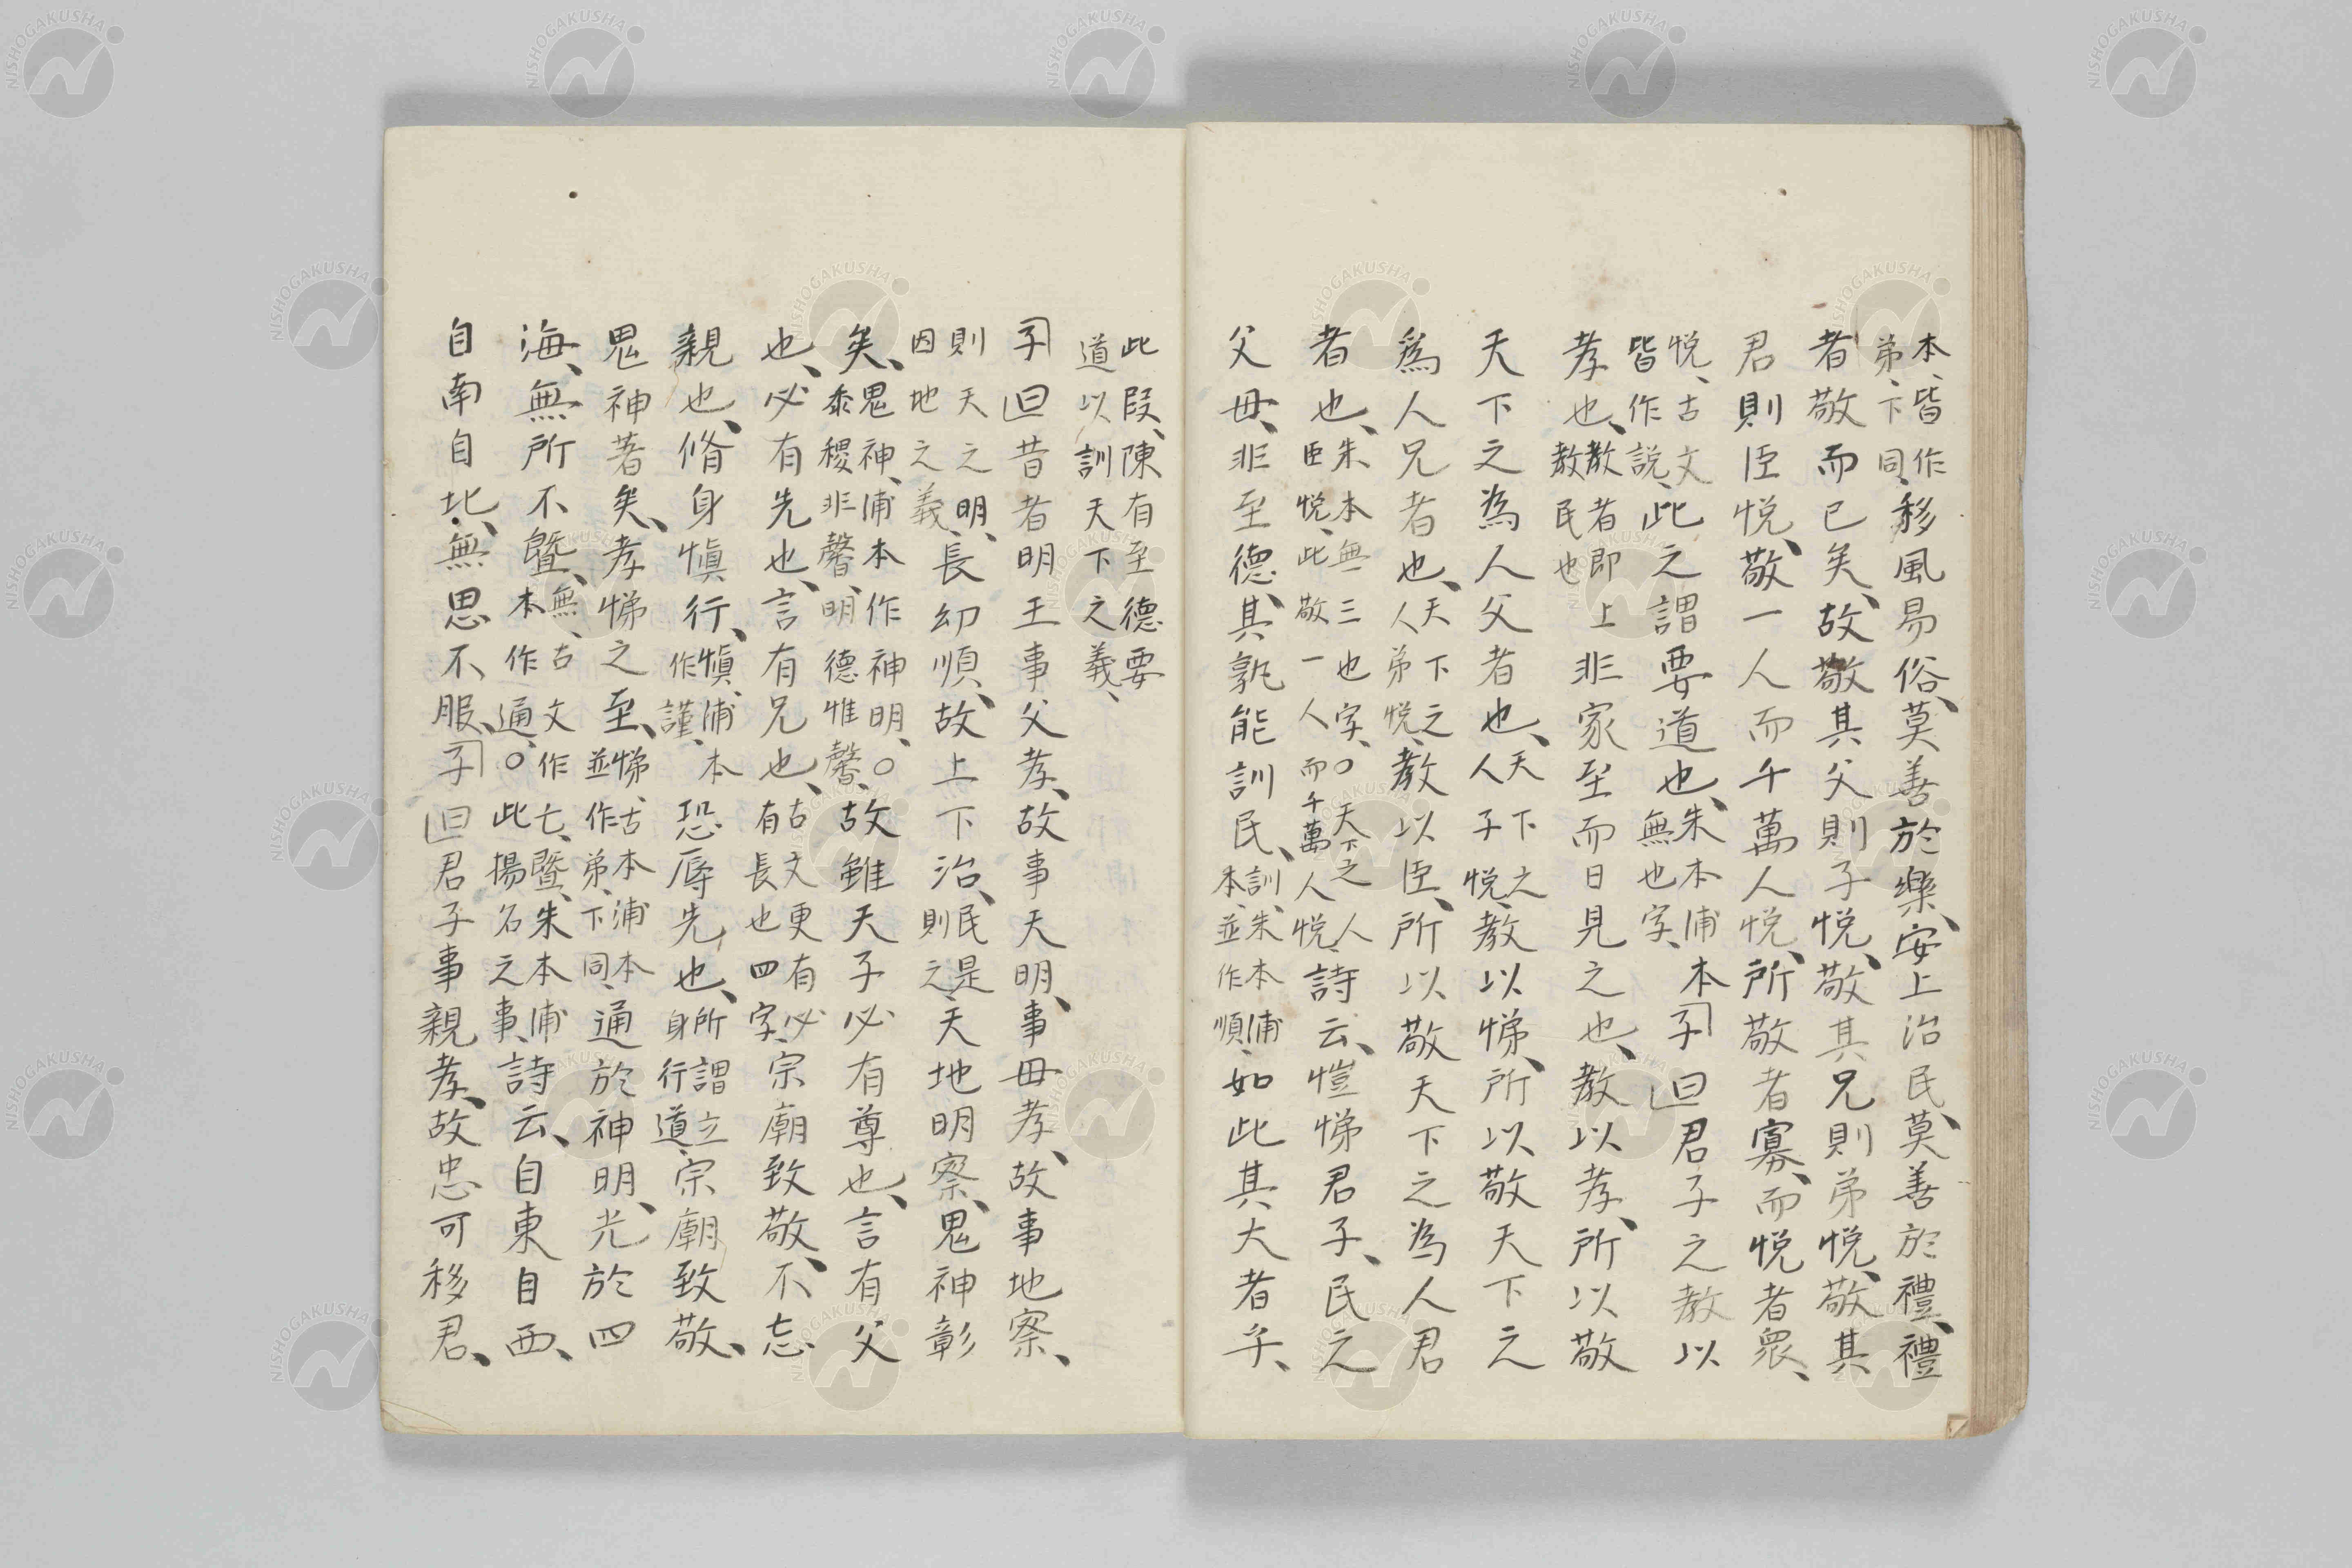 本、皆作弟、下同、移風易俗、莫善於樂、安上治民、莫善於禮、禮
者敬而已矣、故敬其父則子悦、敬其兄則弟悦、敬其
君則臣悦、敬一人而千萬人悦、所敬者寡、而悦者衆、
悦、古文皆作説、此之謂要道也、朱本浦本無也字、子曰君子之教以
孝也、教者即教民也上非家至而日見之也、教以孝、所以敬
天下之為人父者也、天下之人子悦、教以悌、所以敬天下之
爲人兄者也、天下之人弟悦、教以臣、所以敬天下之為人君
者也、朱本無三也字、○天下之人臣悦、此敬一人而千萬人悦、詩云、愷悌君子、民之
父母、非至德、其孰能訓民、訓、朱本浦本、並作順、如此其大者乎、
此段、陳有至德要道以訓天下之義、
子曰昔者明王事父孝、故事天明、事母孝、故事地察、
則天之明、因地之義、長幼順、故上下治、民是則之、天地明察、鬼神彰
矣、鬼神、浦本作神明、○黍稷非馨、明德惟馨、故雖天子必有尊也、言有父
也、必有先也、言有兄也、古文更有必有長也四字、宗廟致敬、不忘
親也、脩身愼行、愼、浦本作謹、恐辱先也、所謂立身行道、宗廟致敬、
鬼神著矣、孝悌之至、悌、古本浦本並作弟、下同、通於神明、光於四
海、無所不曁、無、古文作亡、曁、朱本浦本作通、○此揚名之事、詩云、自東自西、
自南自北、無思不服、子曰君子事親孝、故忠可移君、
NISHOGAKUSHA